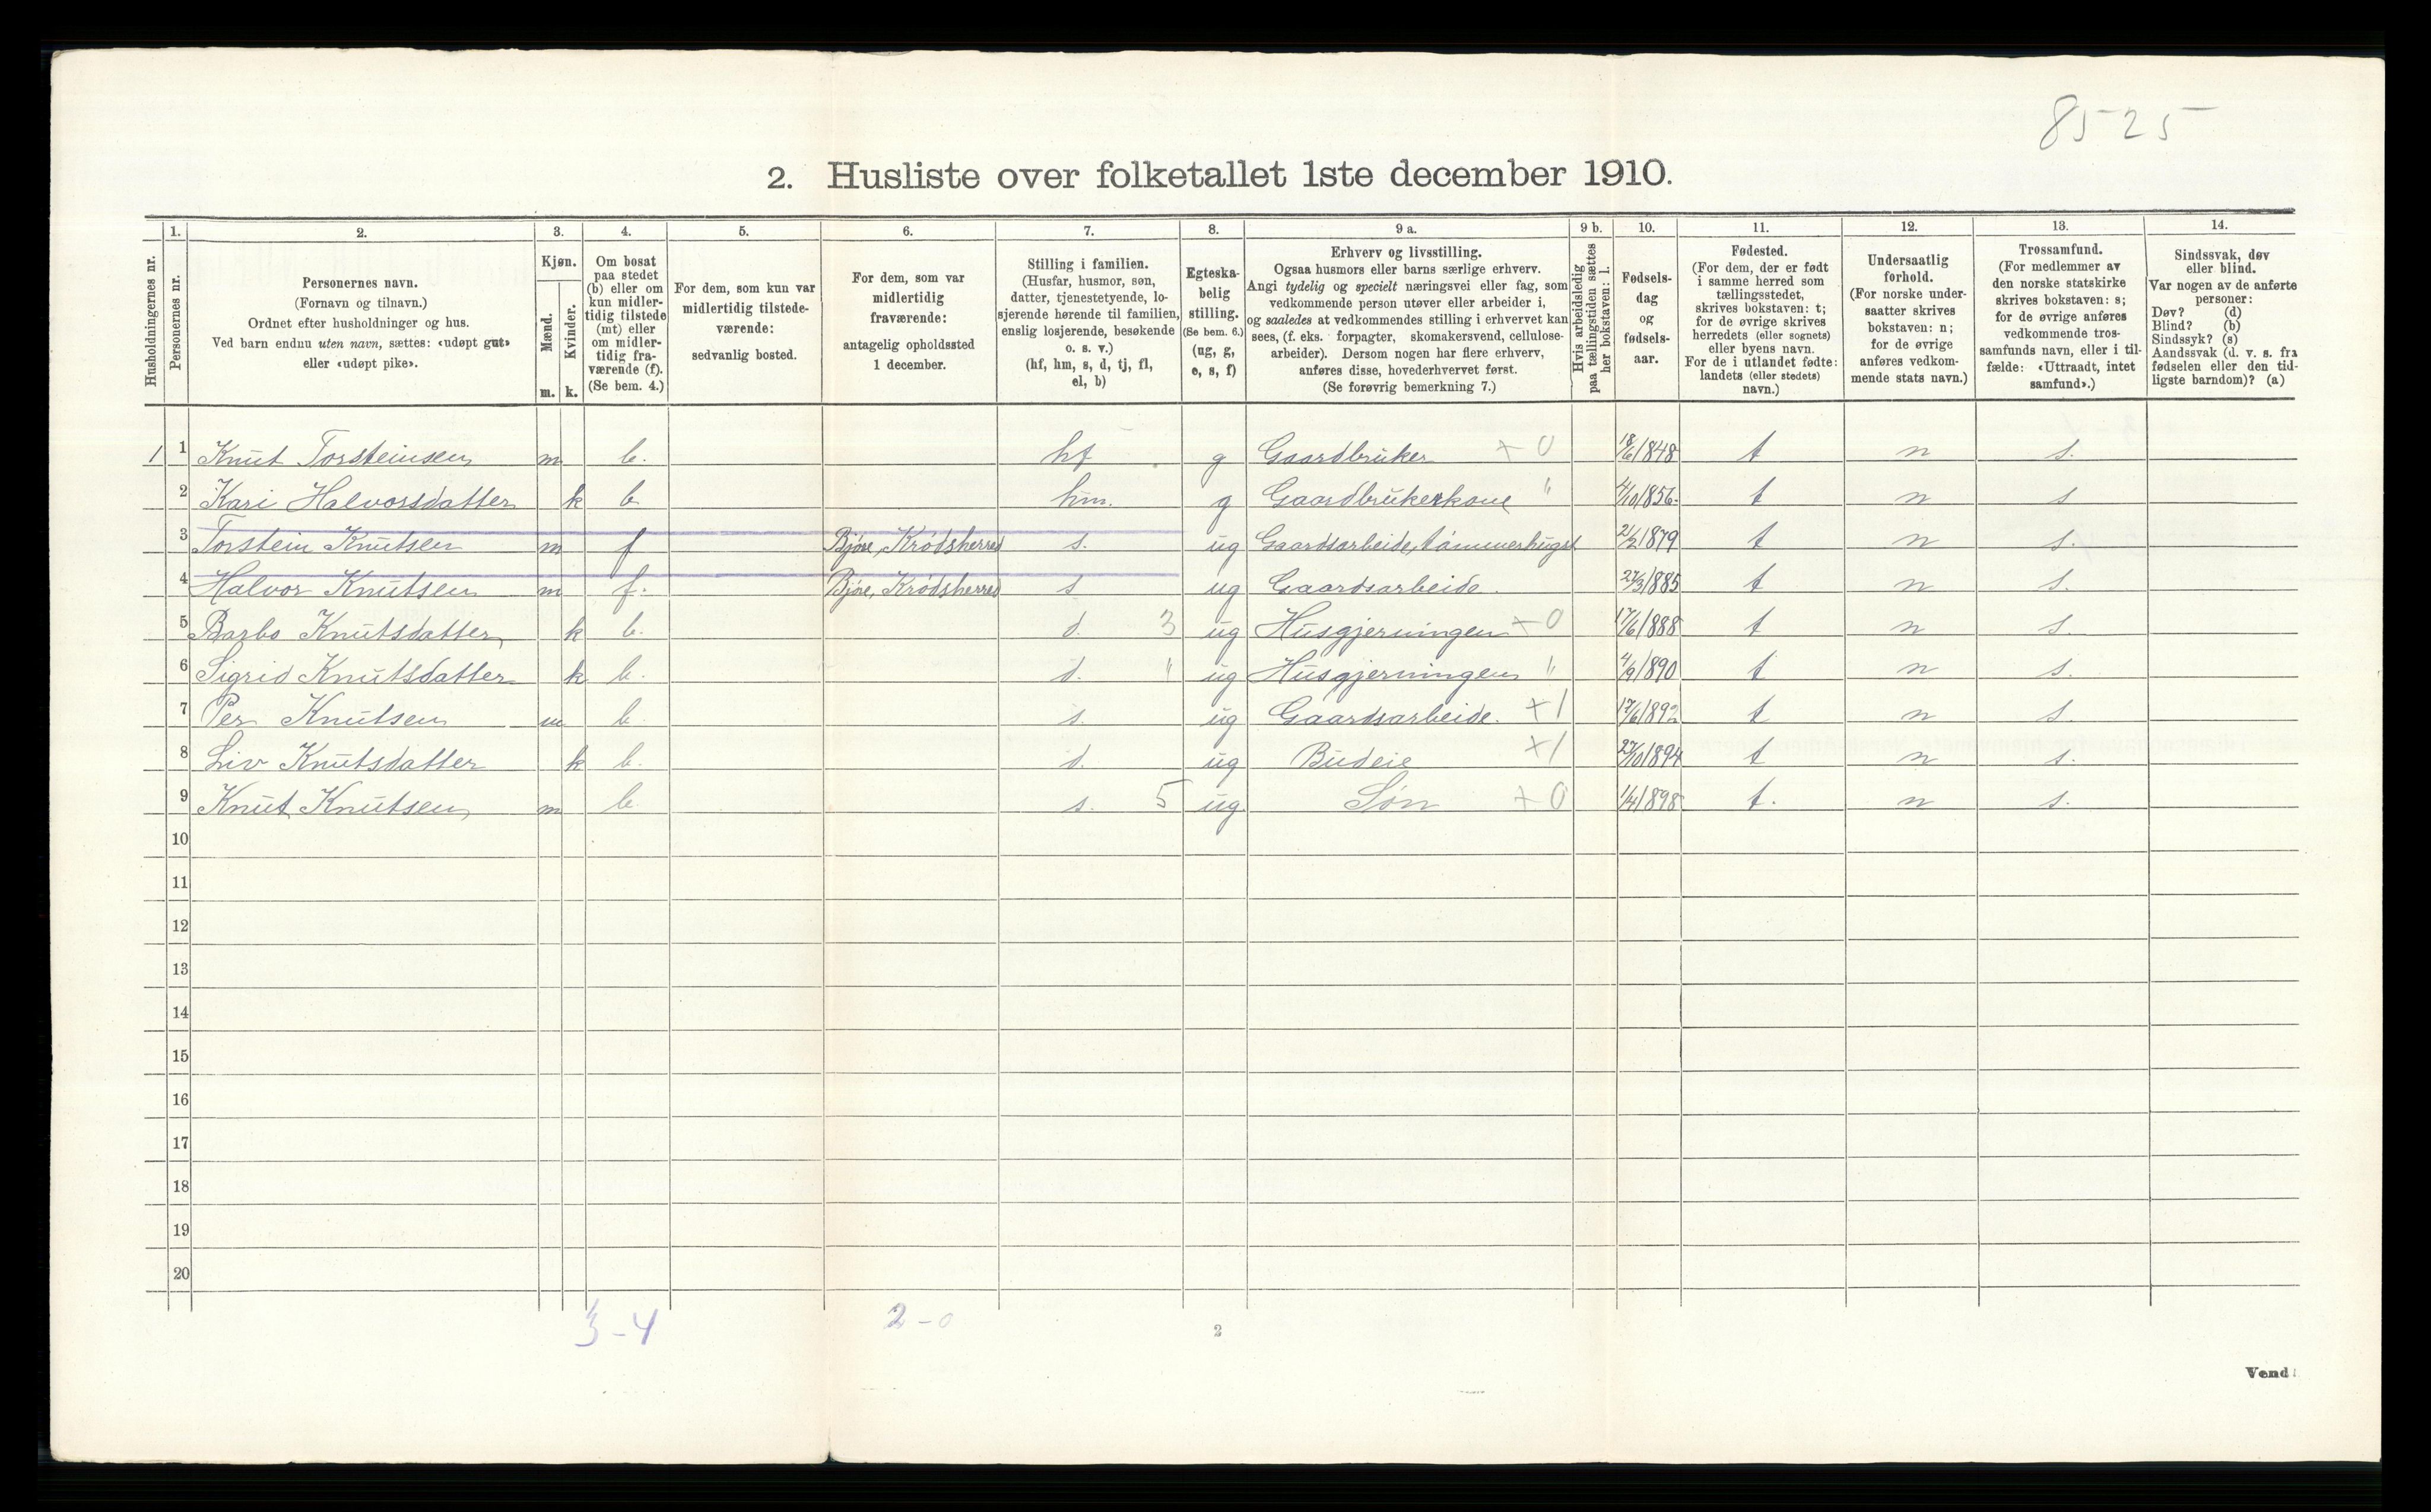 8525
2. Husliste over folketallet 1ste december 1910.
Husholdningernes nr.
1.
Personernes nr.
2.
Personernes navn.
(Fornavn og tilnavn.)
Ordnet efter husholdninger og hus.
Ved barn endnu uten navn, sættes: «udøpt gut»
eller «udøpt pike».
3.
Kjøn.
Mænd.
Kvinder.
m. k.
4.
Om bosat
paa stedet
(b) eller om
kun midler-
tidig tilstede
(mt) eller
om midler-
tidig fra-
værende (f).
(Se bem. 4.)
5.
For dem, som kun var
midlertidig tilstede-
værende:
sedvanlig bosted.
6.
For dem, som var
midlertidig
fraværende:
antagelig opholdssted
1 december.
7.
Stilling i familien.
(Husfar, husmor, søn,
datter, tjenestetyende, lo-
sjerende hørende til familien,
enslig losjerende, besøkende
o. s. v.)
(hf, hm, s, d, tj, fl,
el, b)
8.
Egteska-
belig
stilling.
(Se bem. 6.)
(ug, g,
e, s, f)
9 a.
Erhverv og livsstilling.
Ogsaa husmors eller barns særlige erhverv.
Angi tydelig og specielt næringsvei eller fag, som
vedkommende person utøver eller arbeider i,
og saaledes at vedkommendes stilling i erhvervet kan
sees, (f. eks. forpagter, skomakersvend, cellulose-
arbeider). Dersom nogen har flere erhverv,
anføres disse, hovederhvervet først.
(Se forøvrig bemerkning 7.)
9 b.
Hvis arbeidsledig
paa tællingstiden sættes
her bokstaven: l.
10.
Fødsels-
dag
og
fødsels-
aar.
11.
Fødested.
(For dem, der er født
i samme herred som
tællingsstedet,
skrives bokstaven: t;
for de øvrige skrives
herredets (eller sognets)
eller byens navn.
For de i utlandet fødte:
landets (eller stedets)
navn.)
12.
Undersaatlig
forhold.
(For norske under-
saatter skrives
bokstaven: n;
for de øvrige
anføres vedkom-
mende stats navn.)
13.
Trossamfund.
(For medlemmer av
den norske statskirke
skrives bokstaven: s;
for de øvrige anføres
vedkommende tros-
samfunds navn, eller i til-
fælde: «Uttraadt, intet
samfund».)
14.
Sindssvak, døv
eller blind.
Var nogen av de anførte
personer:
Døv? (d)
Blind? (b)
Sindssyk? (s)
Aandssvak (d. v. s. fra
fødselen eller den tid-
ligste barndom)? (a)
1 1 Knut Torsteinsen m b. hf g Gaardbruker + 0 18/6 1848 t n s.
2 Kari Halvorsdatter k b hm. g Gaardbrukerkone " 4/10 1856 t n s
3 Torstein Knutsen m f Bjøre, Krødsherred s. ug Gaardsarbeide, tømmerhugst 21/2 1879 t n s.
4 Halvor Knutsen m f. Bjøre, Krødsherred s ug Gaardsarbeide. 27/3 1885 t n s.
5 Barbo Knutsdatter k b. d. 3 ug Husgjerningen + 0 17/6 1888 t n s.
6 Sigrid Knutsdatter k b. d. " ug Husgjerningen " 4/9 1890 t n s.
7 Per Knutsen m b. s. ug Gaardsarbeide. + 1 17/6 1892 t n s.
8 Liv Knutsdatter k b. d. ug Budeie + 1 27/10 1894 t n s.
9 Knut Knutsen m b s. 5 ug. Søn + 0 1/4 1898 t. n s.
10
11
12
13
14
15
16
17
18
19
20
3-4
2-0
2
Vend